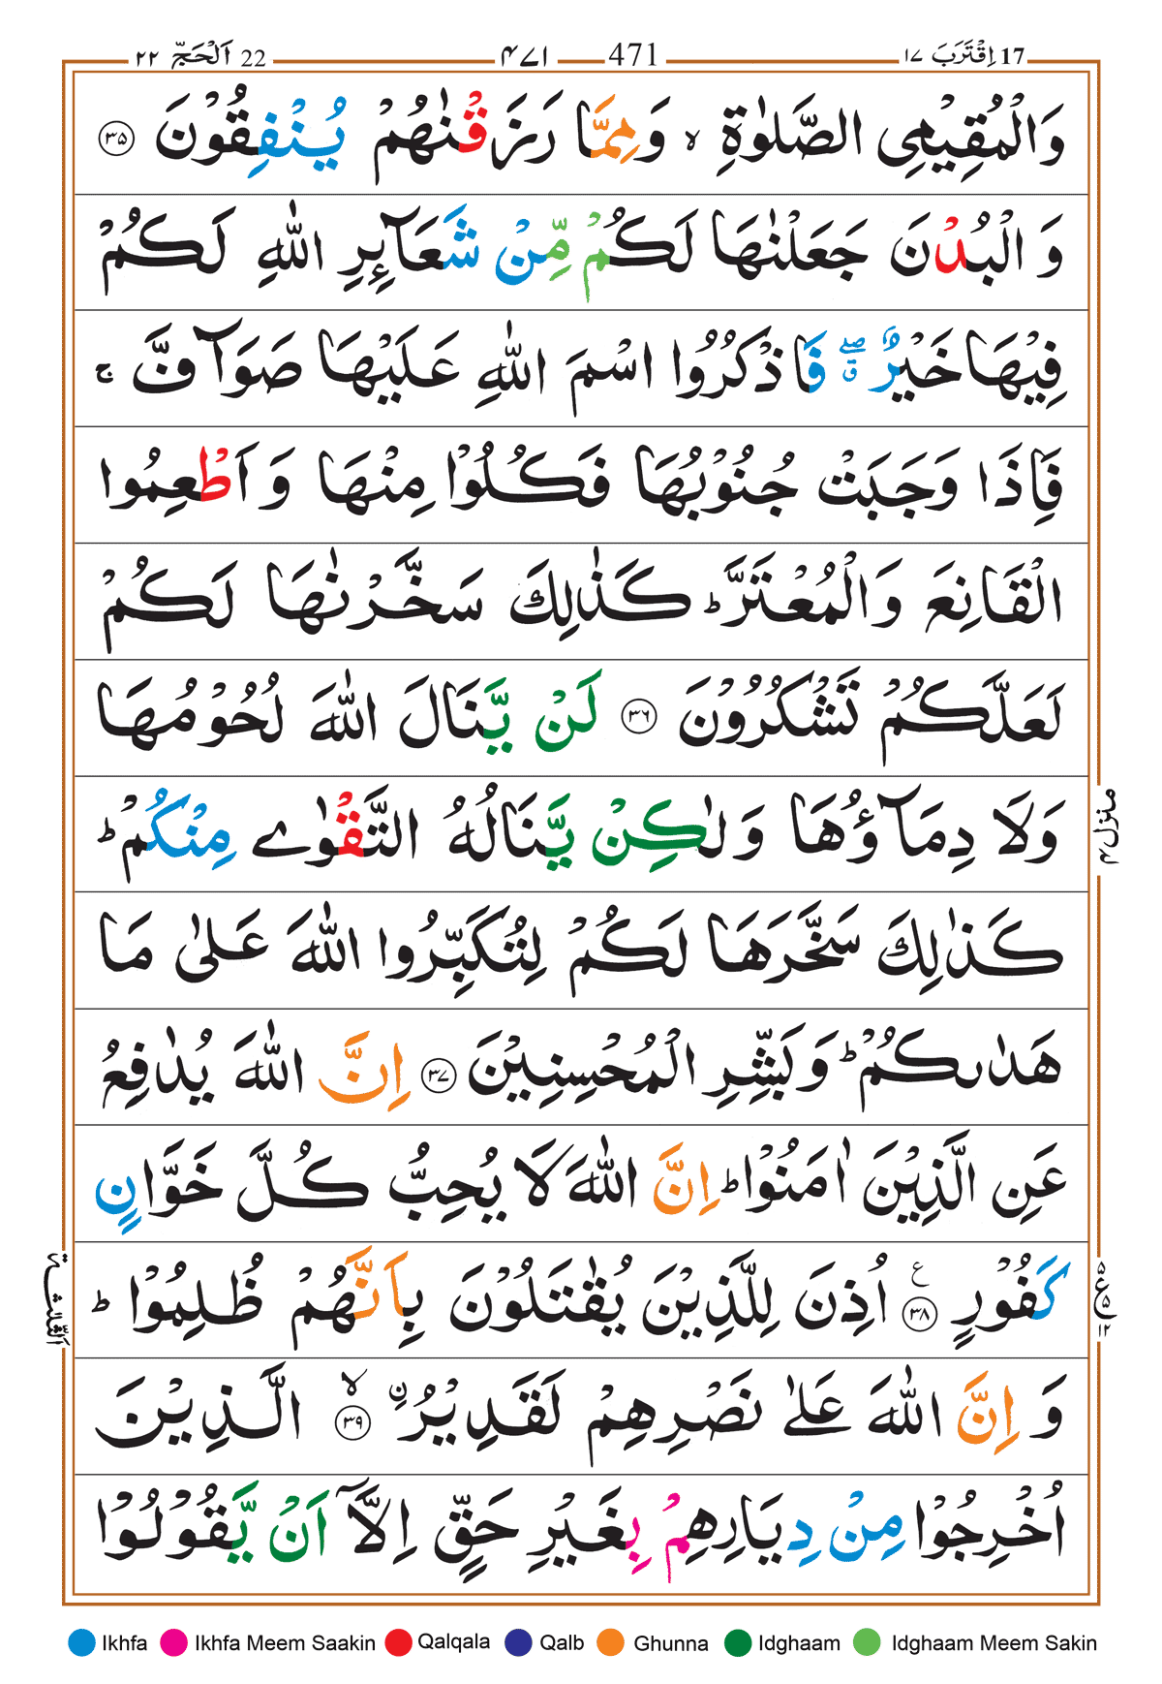 17 اِقْتَرَبَ ١٧ 471 ٤٧١ 22 اَلْحَجّ ٢٢
وَالْمُقِيْمِى الصَّلٰوةِ ۙ وَمِمَّا رَزَقْنٰهُمْ يُنْفِقُوْنَ ٣٥
وَ الْبُدْنَ جَعَلْنٰهَا لَكُمْ مِّنْ شَعَآئِرِ اللّٰهِ لَكُمْ
فِيْهَا خَيْرٌ ۖۗ فَاذْكُرُوا اسْمَ اللّٰهِ عَلَيْهَا صَوَآفَّ ۚ
فَاِذَا وَجَبَتْ جُنُوْبُهَا فَكُلُوْا مِنْهَا وَ اَطْعِمُوا
الْقَانِعَ وَالْمُعْتَرَّ ؕ كَذٰلِكَ سَخَّرْنٰهَا لَكُمْ
لَعَلَّكُمْ تَشْكُرُوْنَ ٣٦ لَنْ يَّنَالَ اللّٰهَ لُحُوْمُهَا
وَلَا دِمَآؤُهَا وَلٰكِنْ يَّنَالُهُ التَّقْوٰے مِنْكُمْ ؕ
كَذٰلِكَ سَخَّرَهَا لَكُمْ لِتُكَبِّرُوا اللّٰهَ عَلٰى مَا
هَدٰٮكُمْ ؕ وَبَشِّرِ الْمُحْسِنِيْنَ ٣٧ اِنَّ اللّٰهَ يُدٰفِعُ
عَنِ الَّذِيْنَ اٰمَنُوْا ؕ اِنَّ اللّٰهَ لَا يُحِبُّ كُلَّ خَوَّانٍ
كَفُوْرٍ ٣٨ ع اُذِنَ لِلَّذِيْنَ يُقٰتَلُوْنَ بِاَنَّهُمْ ظُلِمُوْا ؕ
وَ اِنَّ اللّٰهَ عَلٰى نَصْرِهِمْ لَقَدِيْرُ ۨ ٣٩ ۙ الَّذِيْنَ
اُخْرِجُوْا مِنْ دِيَارِهِمْ بِغَيْرِ حَقٍّ اِلَّاۤ اَنْ يَّقُوْلُوْا
منزل ٤
ع ٥ ١٢
الثلٰثة
Ikhfa Ikhfa Meem Saakin Qalqala Qalb Ghunna Idghaam Idghaam Meem Sakin